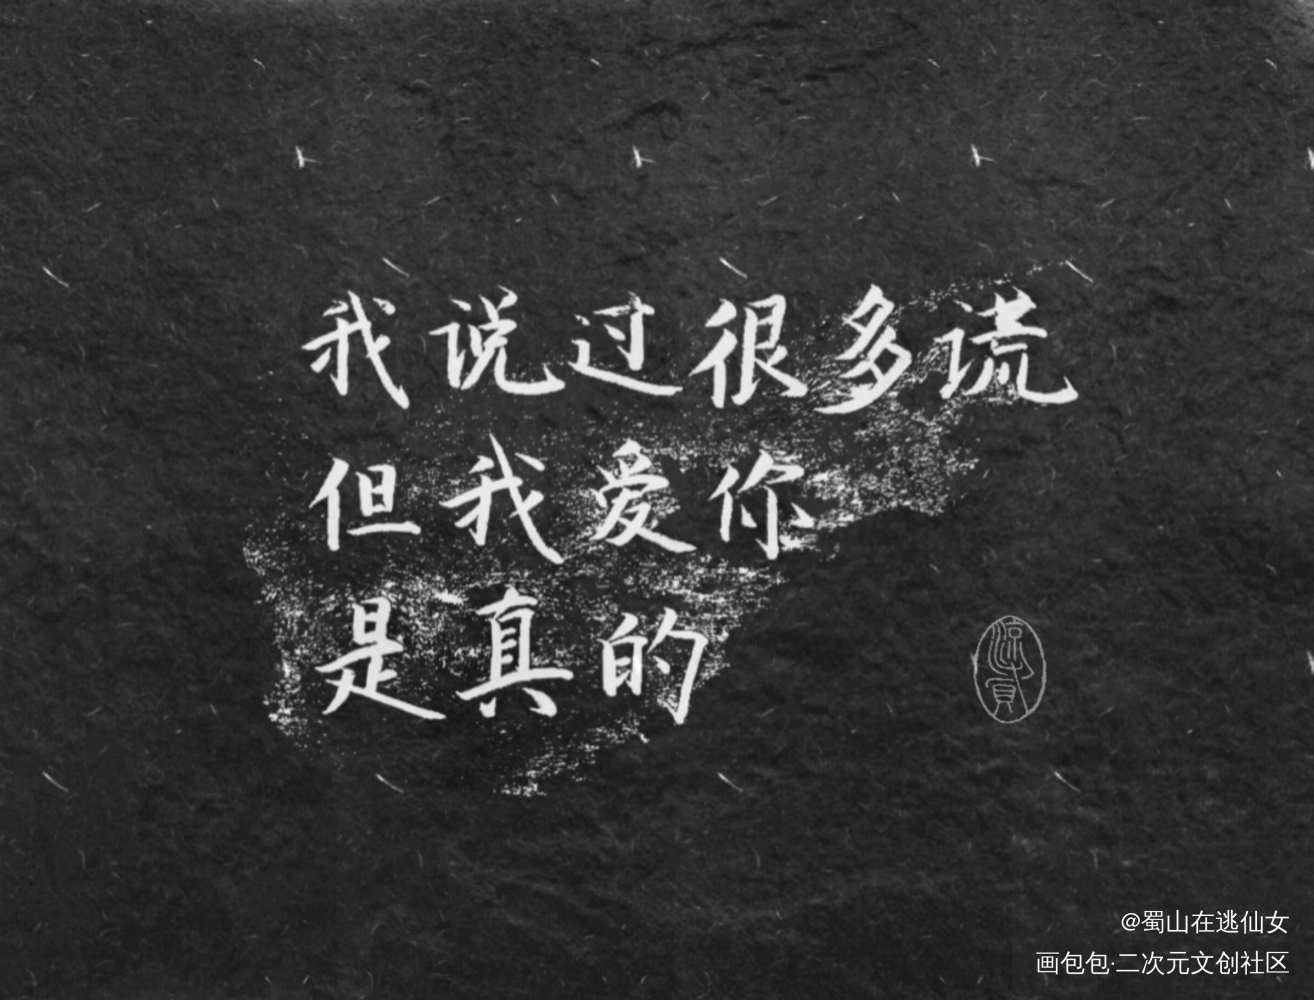 我说过很多谎
但我爱你
是真的
@蜀山在逃仙女
画包包·二次元文创社区